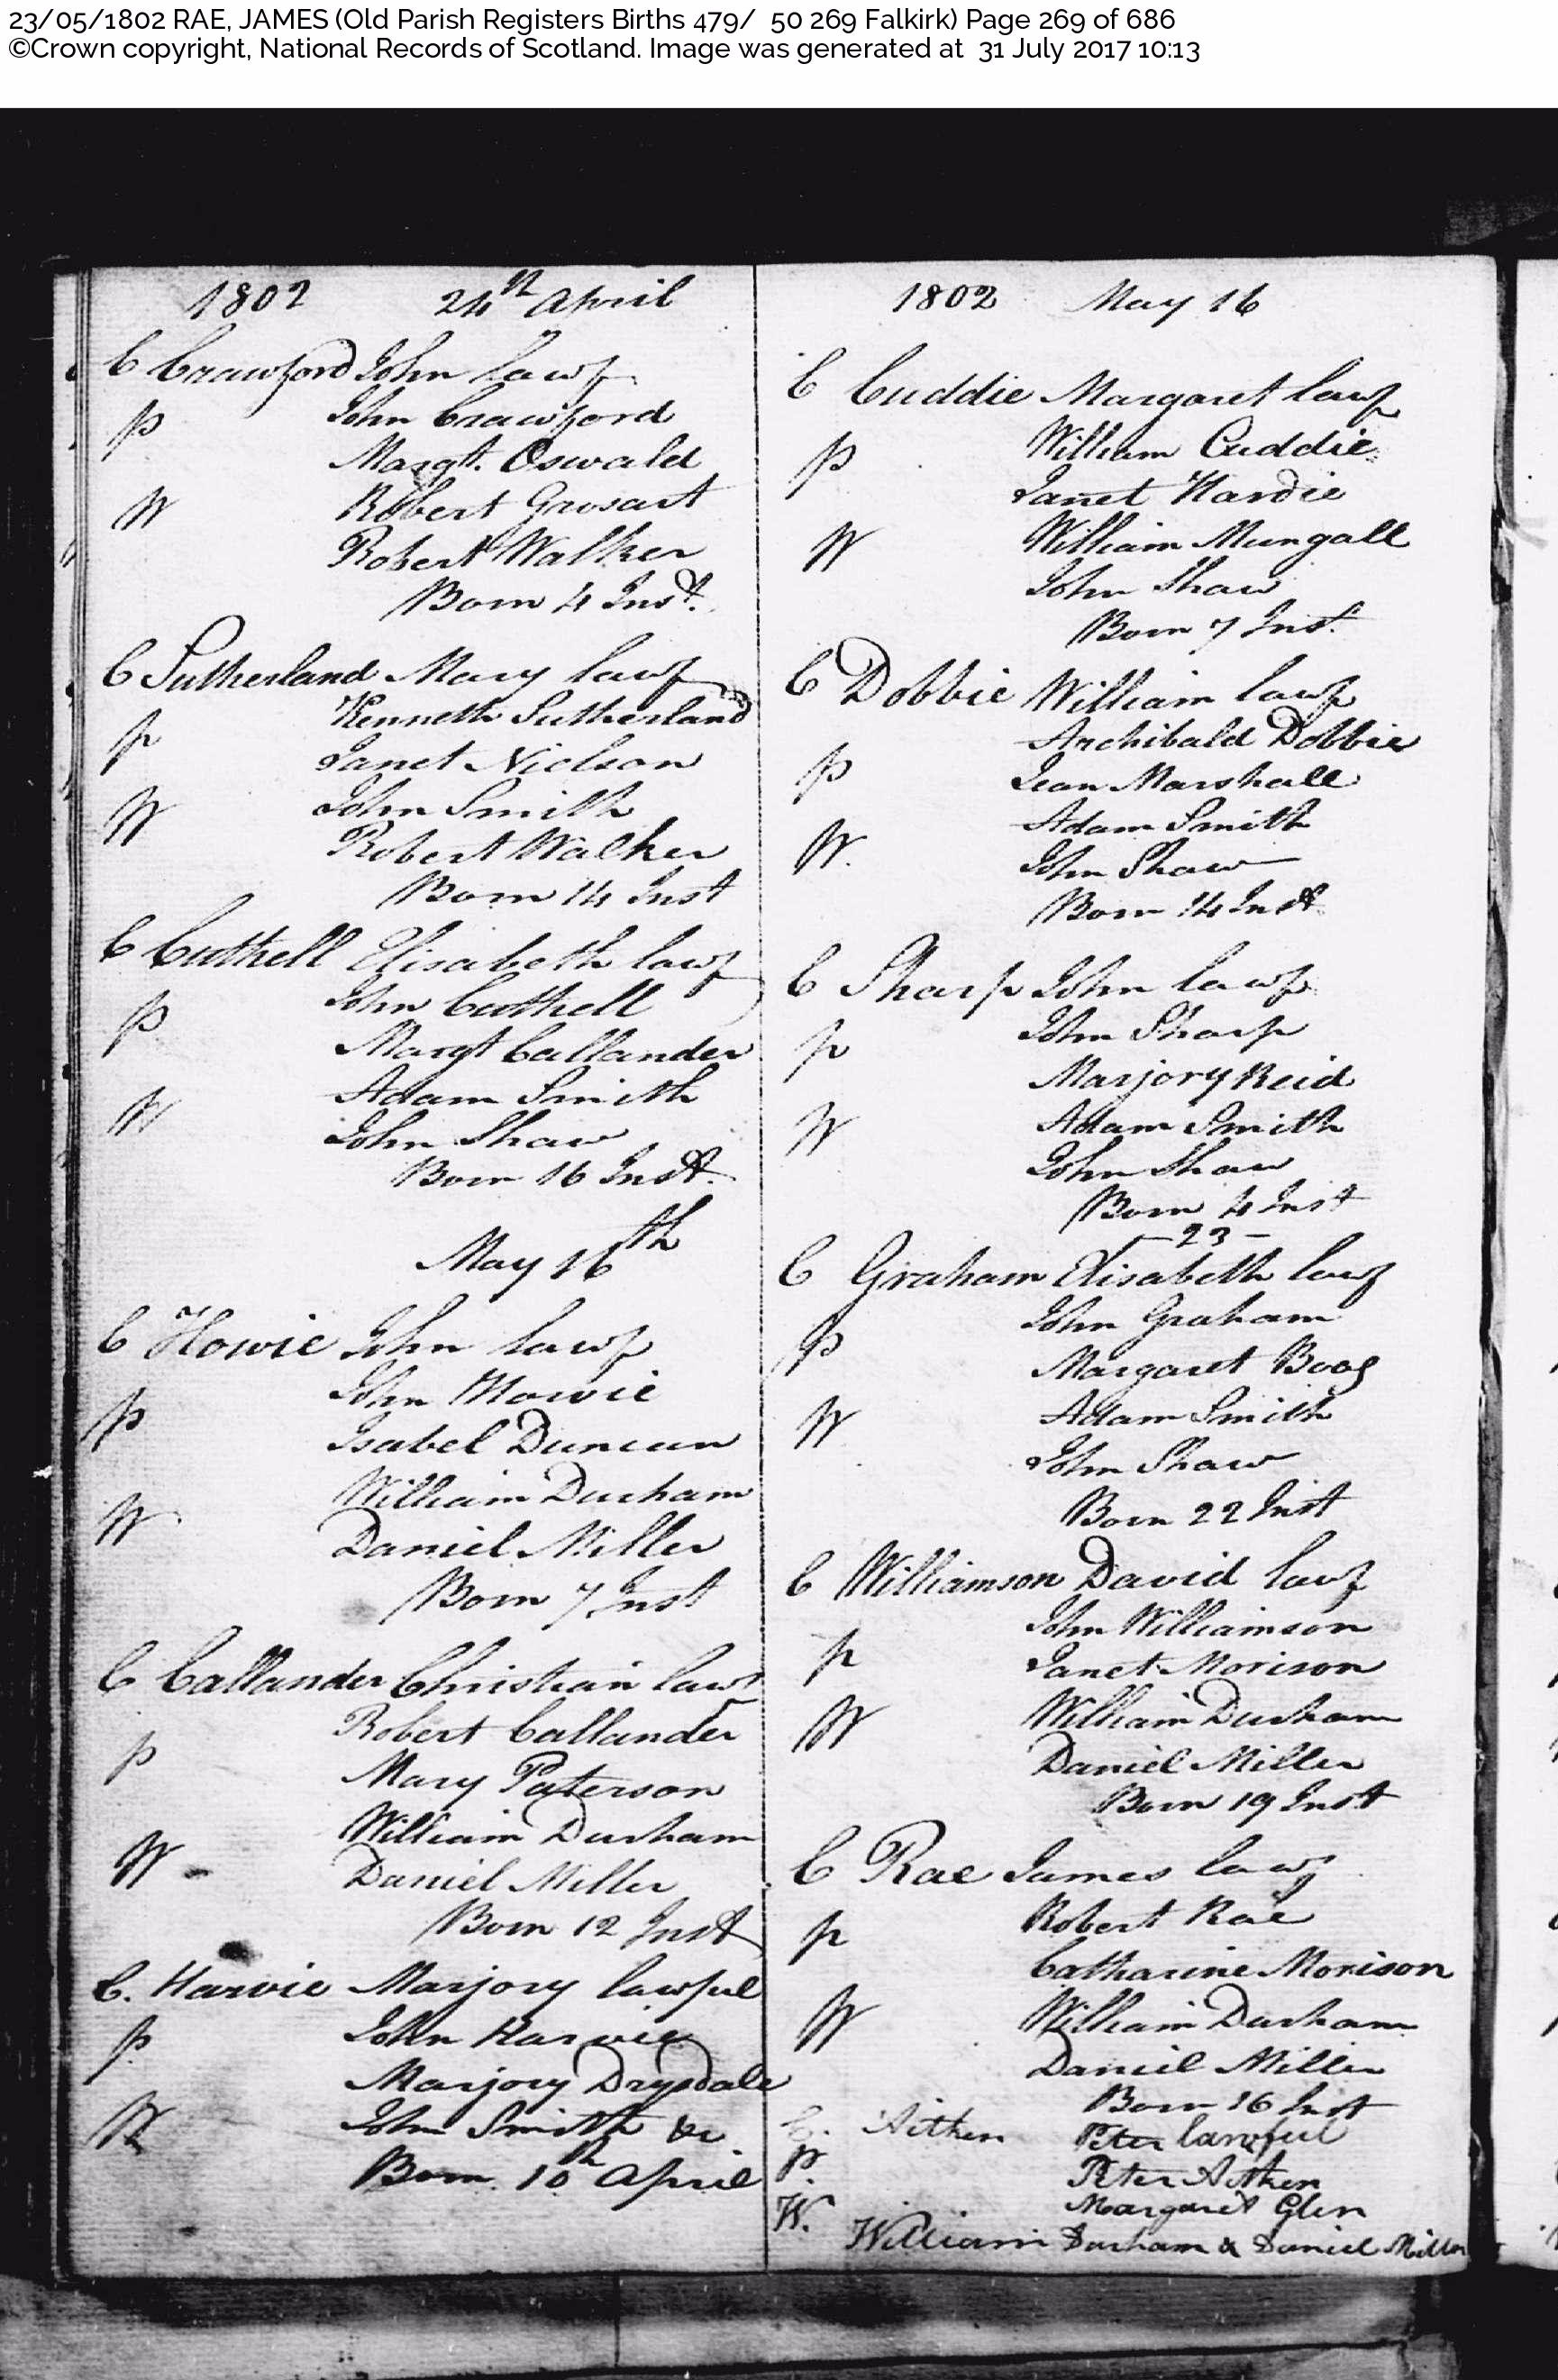 23/05/1802 RAE, JAMES (Old Parish Registers Births 479/ 50 269 Falkirk) Page 269 of 686
©Crown copyright, National Records of Scotland. Image was generated at 31 July 2017 10:13
1802 24th April
C Crawford John lawf
P John Crawford
Margt. Oswald
W Robert Grosart
Robert Walker
Born 4 Inst.
C Sutherland Mary lawf
P Kenneth Sutherland
Janet Nielson
W John Smith
Robert Walker
Born 14 Inst
C Cuthell Elisabeth lawf
P John Cuthell
Margt Callander
W Adam Smith
John Shaw
Born 16 Inst.
May 16th
C Howie John lawf
P John Howie
Isabel Duncan
W William Durham
Daniel Miller
Born 7 Inst
C Callander Christian lawf
P Robert Callander
Mary Paterson
William Durham
W Daniel Miller
Born 12 Inst
C. Harvie Marjory lawful
P John Harvie
Marjory Drysdale
W John Smith &c.
Born 10th April
1802 May 16
C Cuddie Margaret lawf
P William Cuddie
Janet Hardie
W William Mungall
John Shaw
Born 7 Inst.
C Dobbie William lawf
Archibald Dobbie
P Jean Marshall
Adam Smith
W. John Shaw
Born 14 Inst
C Sharp John lawf
P John Sharp
Marjory Reid
W Adam Smith
John Shaw
Born 4 Inst
- 23 -
C Graham Elisabeth lawf
P John Graham
Margaret Boog
W Adam Smith
John Shaw
Born 22 Inst
C Williamson David lawf
John Williamson
P Janet Morison
W William Durham
Daniel Miller
Born 19 Inst
C Rae James lawf
P Robert Rae
Catharine Morison
W William Durham
Daniel Miller
Born 16 Inst
C. Aitken Peter lawful
P. Peter Aitken
Margaret Glen
W. William Durham & Daniel Miller